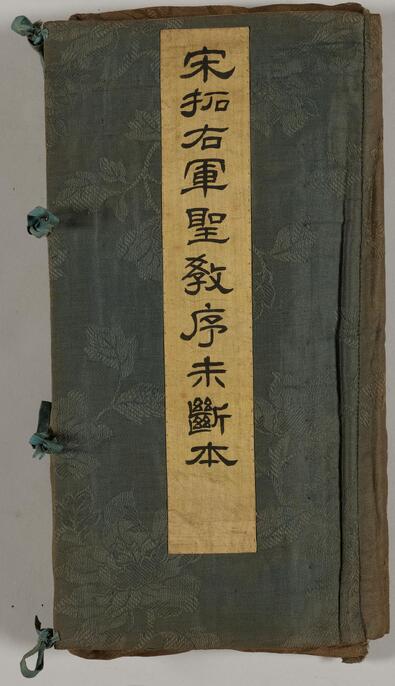 宋拓右軍聖教序未斷本